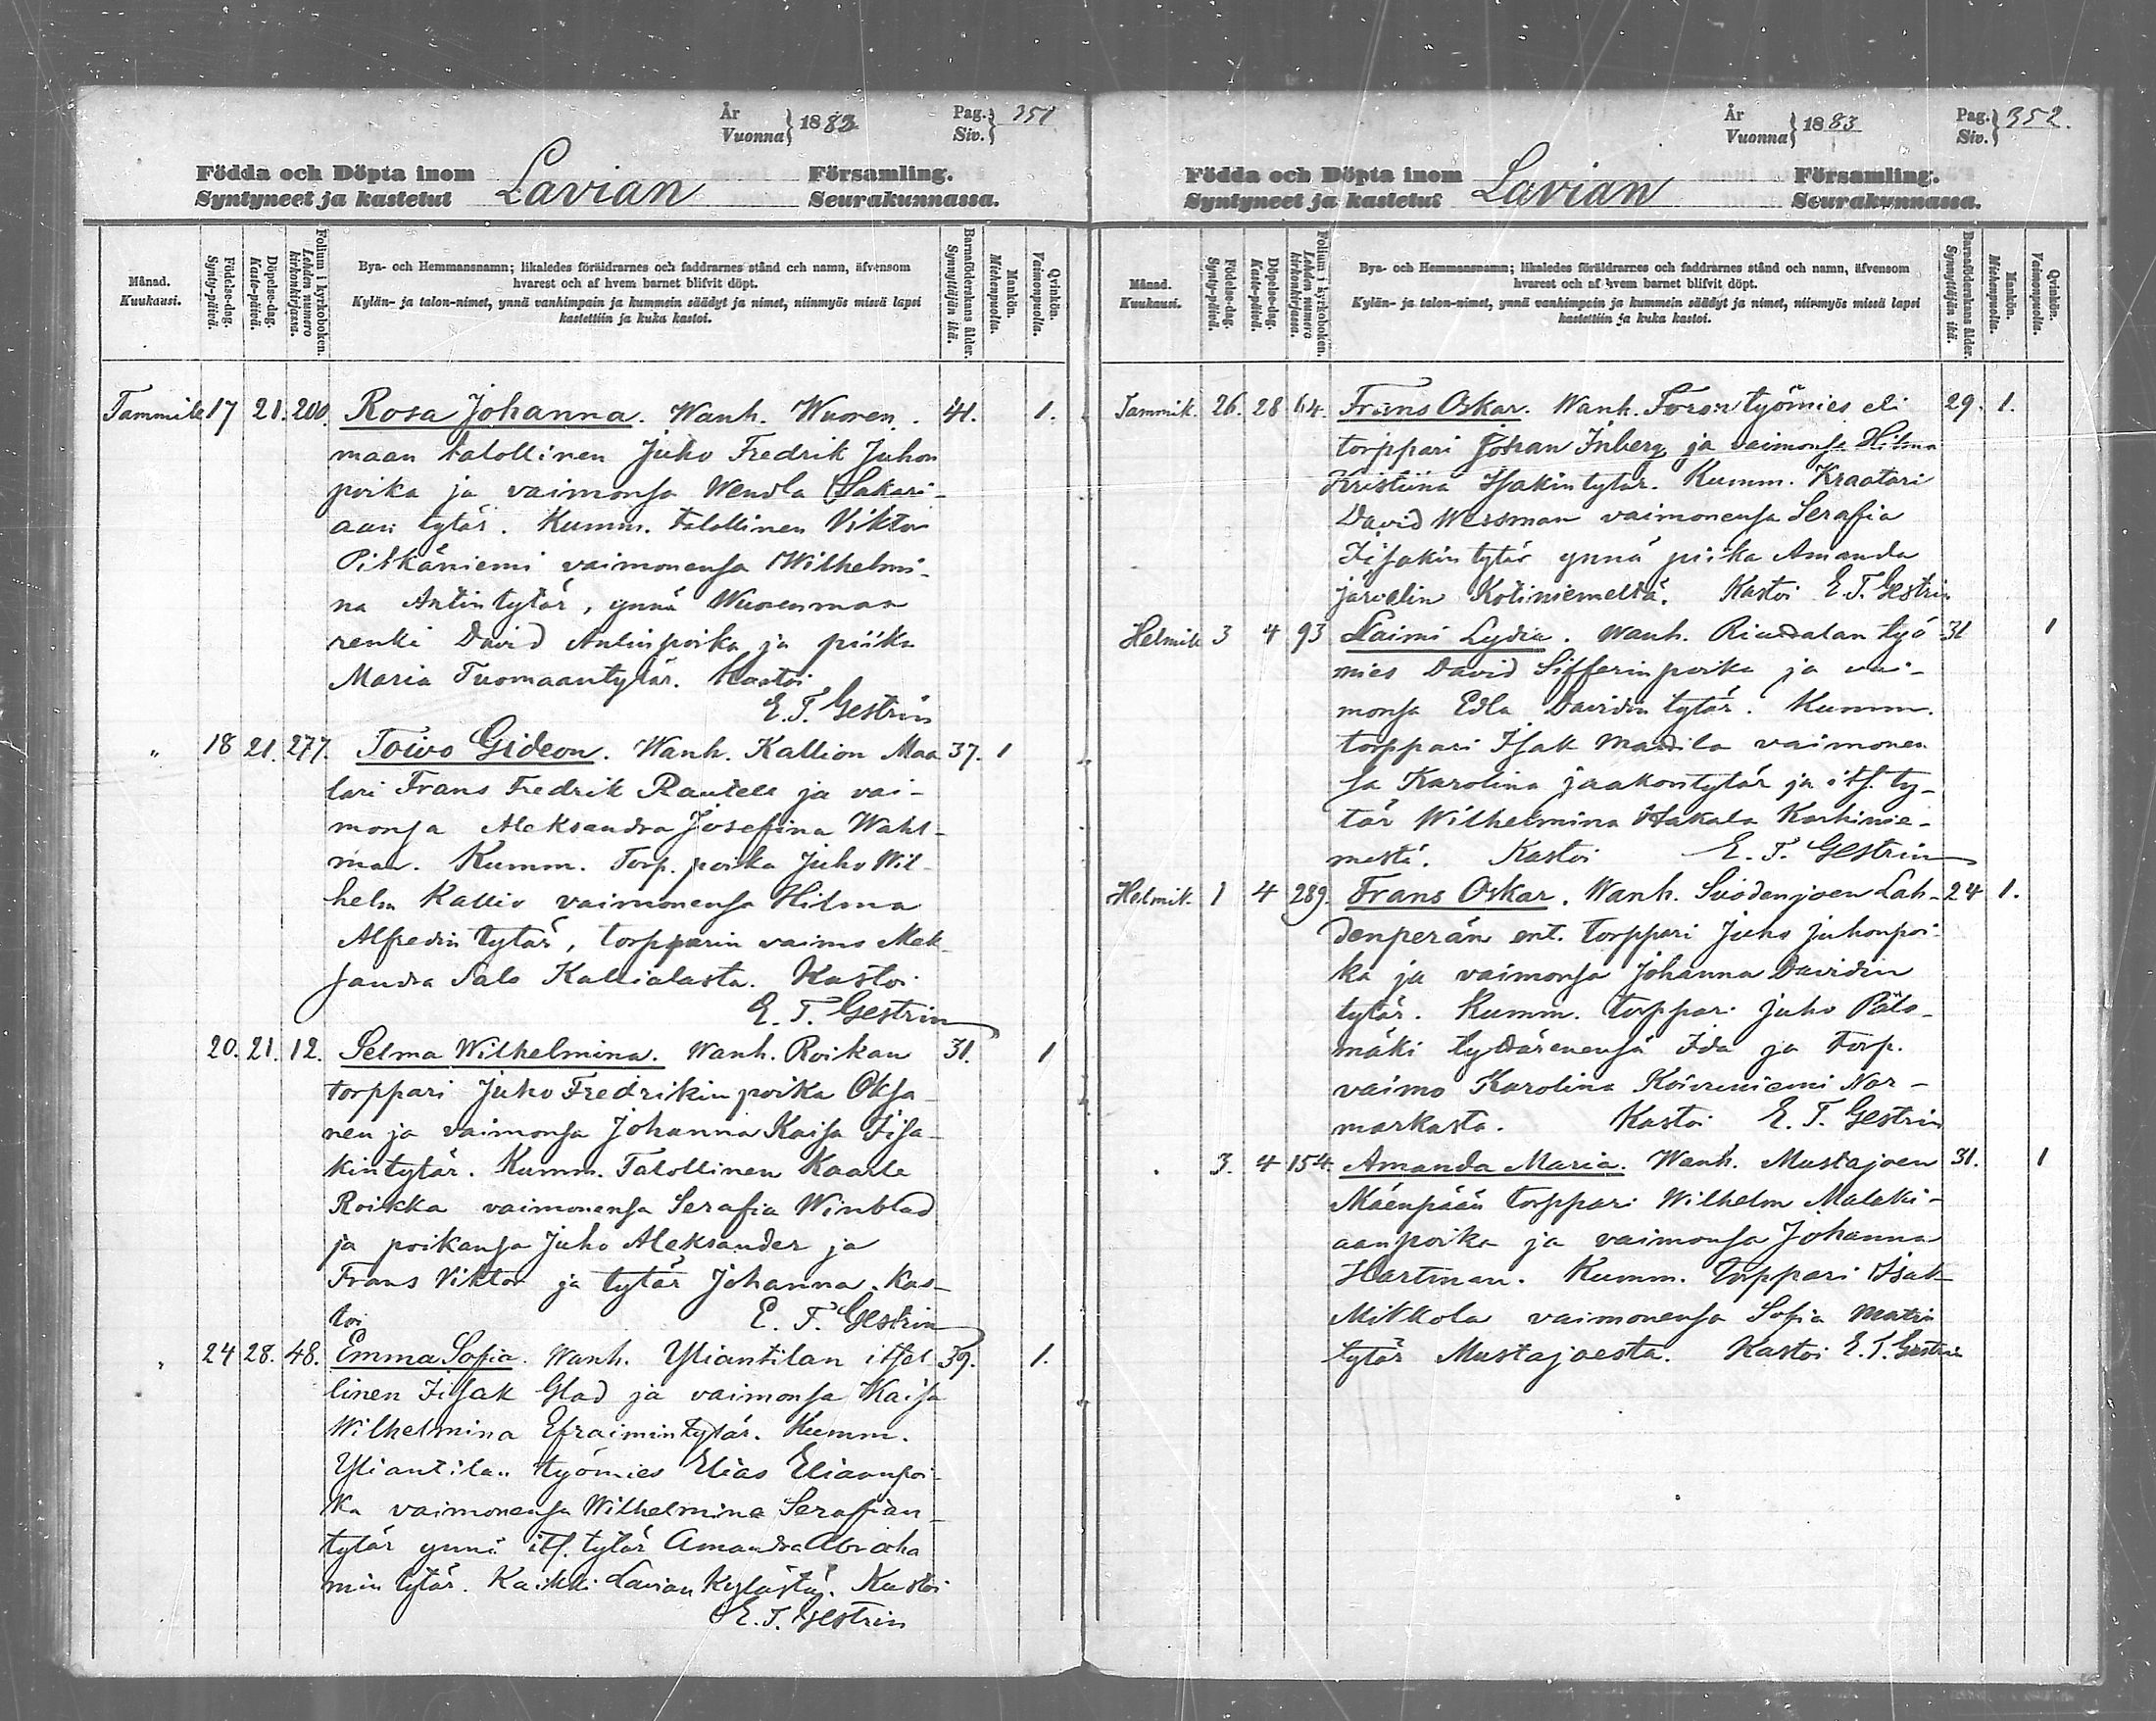 År
Vuonna } 1883
Pag.
Siv. } 351
Födda och Döpta inom Lavian Församling.
Syntyneet ja kastetut Seurakunnassa.
Månad.
Kuukausi.
Födelse-dag.
Synty-päivä.
Döpelse-dag.
Kaste-päivä.
Folium i kyrkoboken.
Lehden numero kirkonkirjassa.
Bya- och Hemmansnamn; likaledes föräldrarnes och faddrarnes stånd och namn, äfvensom
hvarest och af hvem barnet blifvit döpt.
Kylän- ja talon-nimet, ynnä vanhimpain ja kummein säädyt ja nimet, niinmyös missä lapsi
kastettiin ja kuka kastoi.
Barnaföderskans ålder.
Synnyttäjän ikä.
Mankön.
Miehenpuolia.
Qvinkön.
Vaimonpuolia.
Tammik 17 21. 200. Rosa Johanna. Wanh. Wuoren- 41. 1.
maan talollinen Juho Fredrik Juhon
poika ja vaimonsa Wendla Sakari-
aan tytär. Kumm. talollinen Viktor
Pitkäniemi vaimonensa Wilhelmi-
na Antintytär, ynnä Wuorenmaan
renki David Antinpoika ja piika
Maria Tuomaantytär. Kastoi
E. T. Gestrin
" 18 21. 277. Toivo Gideon. Wanh. Kallion Maa 37. 1
lari Frans Fredrik Rautell ja vai-
monsa Aleksandra Josefina Wahl-
man. Kumm. Torp. poika Juho Wil-
helm Kallio vaimonensa Hilma
Alfredin tytär, torpparin vaimo Alek-
sandra Salo Kallialasta. Kastoi
E. T. Gestrin
20. 21. 12. Selma Wilhelmina. Wanh. Roikan 31. 1
torppari Juho Fredrikin poika Oksa-
nen ja vaimonsa Johanna Kaisa Iisa-
kintytär. Kumm. Talollinen Kaarle
Roikka vaimonensa Serafia Winblad
ja poikansa Juho Aleksander ja
Frans Viktor ja tytär Johanna. Kas-
toi E. T. Gestrin
" 24 28. 48. Emma Sofia. Wanh. Yliantilan itsel 39. 1.
linen Iisak Glad ja vaimonsa Kaisa
Wilhelmina Efraimintytär. Kumm.
Yliantilan työmies Elias Eliaanpoi-
ka vaimonensa Wilhelmina Serafian-
tytär ynnä its. tytär Amanda Abraha
min tytär. Kaikki Lavian kylästä. Kastoi
E. T. Gestrin
År
Vuonna } 1883
Pag.
Siv. } 352.
Födda och Döpta inom Lavian Församling.
Syntyneet ja kastetut Seurakunnassa.
Månad.
Kuukausi.
Födelse-dag.
Synty-päivä.
Döpelse-dag.
Kaste-päivä.
Folium i kyrkoboken.
Lehden numero kirkonkirjassa.
Bya- och Hemmansnamn; likaledes föräldrarnes och faddrarnes stånd och namn, äfvensom
hvarest och af hvem barnet blifvit döpt.
Kylän- ja talon-nimet, ynnä vanhimpain ja kummein säädyt ja nimet, niinmyös missä lapsi
kastettiin ja kuka kastoi.
Barnaföderskans ålder.
Synnyttäjän ikä.
Mankön.
Miehenpuolia.
Qvinkön.
Vaimonpuolia.
Tammik. 26. 28 64. Frans Oskar. Wanh. työmies eli 29. 1.
torppari Johan Inberg ja vaimonsa Hilma
Kristiina Isakintytär. Kumm. Kraatari
David Wessman vaimonensa Serafia
Iisakin tytär ynnä piika Amanda
Järvelin Kotiniemeltä. Kastoi E. T. Gestrin
Helmik 3 4 93 Naimi Lydia. Wanh. Riudalan työ 31 1
mies David Sifferin poika ja vai-
monsa Edla Davidin tytär. Kumm.
torppari Isak Mattila vaimonen
sa Karolina Jaakontytär ja its. ty-
tär Wilhelmina Hakala Karhinie-
mestä. Kastoi E. T. Gestrin
Helmik. 1 4 289. Frans Oskar. Wanh. Suodenjoen Lah- 24 1.
denperän ent. torppari Juho Juhonpoi-
ka ja vaimonsa Johanna Davidin
tytär. Kumm. torppari Juho Palo-
mäki tyttärenensä Ida ja torp.
vaimo Karolina Koivuniemi Nor-
markusta. Kastoi E. T. Gestrin
. 3. 4 154. Amanda Maria. Wanh. Mustajoen 31. 1
Mäenpään torppari Wilhelm Malaki-
aanpoika ja vaimonsa Johanna
Hartman. Kumm. Torppari Isak
Mikkola vaimonensa Sofia Matin
tytär Mustajoesta. Kastoi E. T. Gestrin